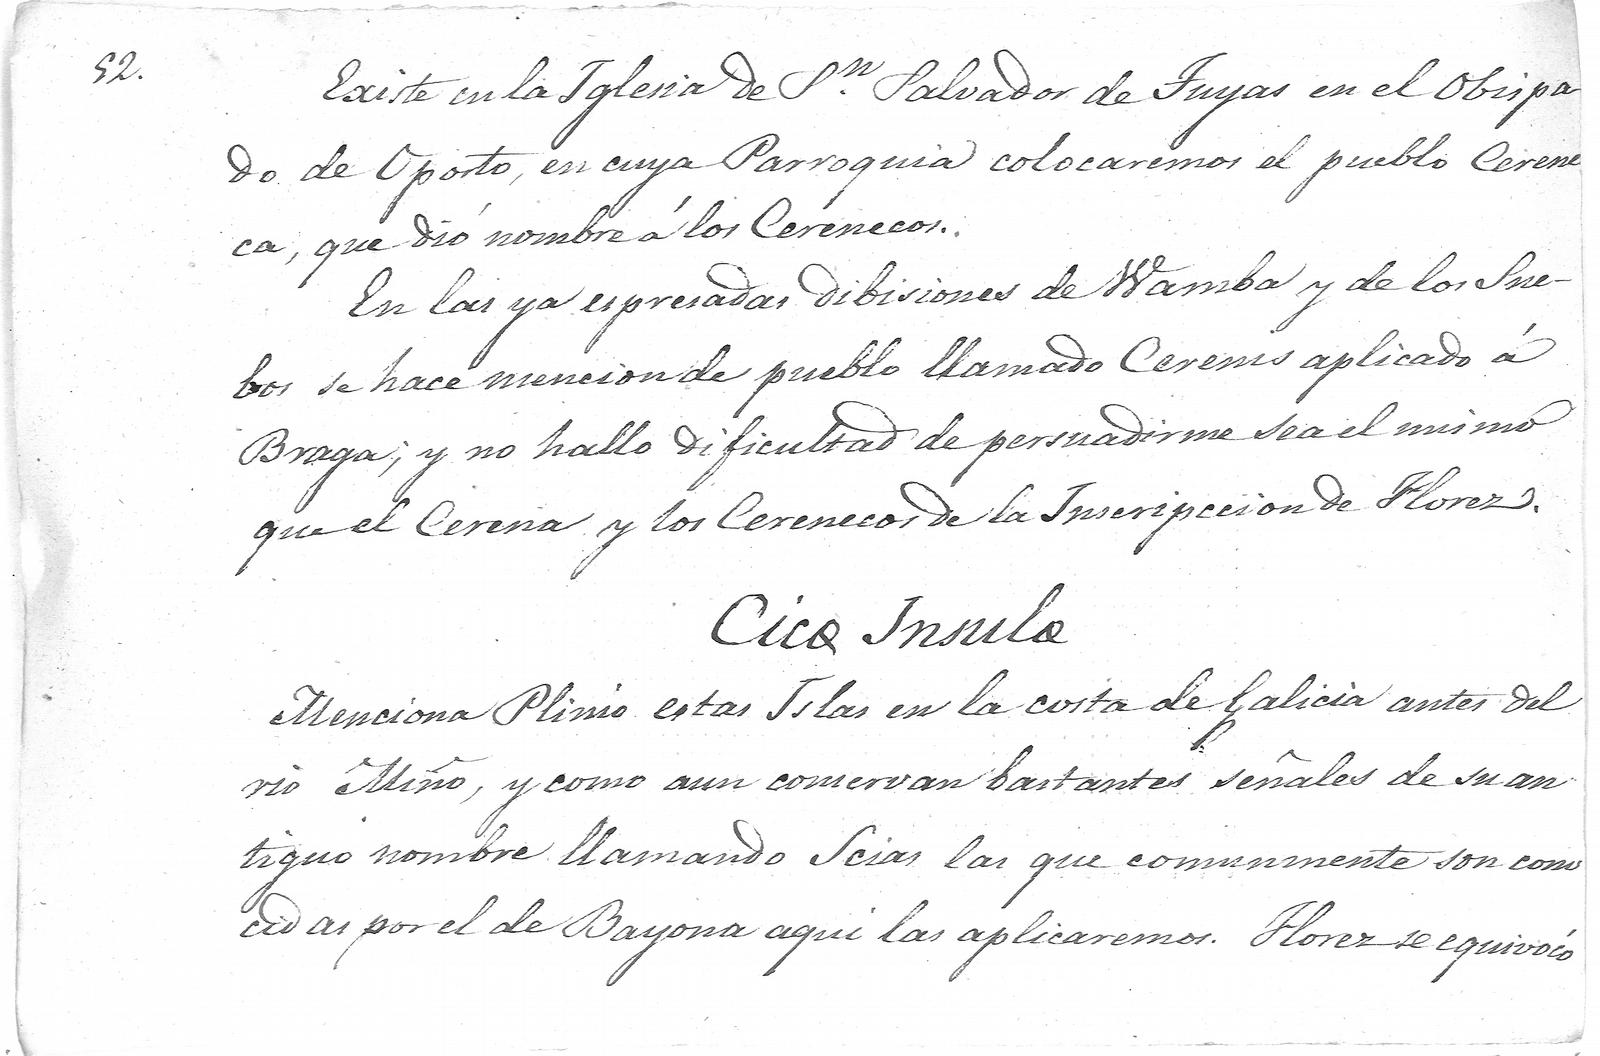 52.
Existe en la Iglesia de S.n Salvador de Tuyas en el Obispa
do de Oporto, en cuya Parroquia colocaremos el pueblo Cerene
ca, que dió nombre á los Cerenecos.
En las ya espresadas dibisiones de Wamba y de los Sue-
bos se hace mencion de pueblo llamado Cerenis aplicado á
Braga; y no hallo dificultad de persuadirme sea el mismo
que el Cerena y los Cerenecos de la Inscripccion de Florez.
Cicæ Insulæ
Menciona Plinio estas Islas en la costa de Galicia antes del
rio Miño, y como aun conservan bastantes señales de su an
tiguo nombre llamando Scias las que comunmente son cono
cidas por el de Bayona aqui las aplicaremos. Florez se equivocó